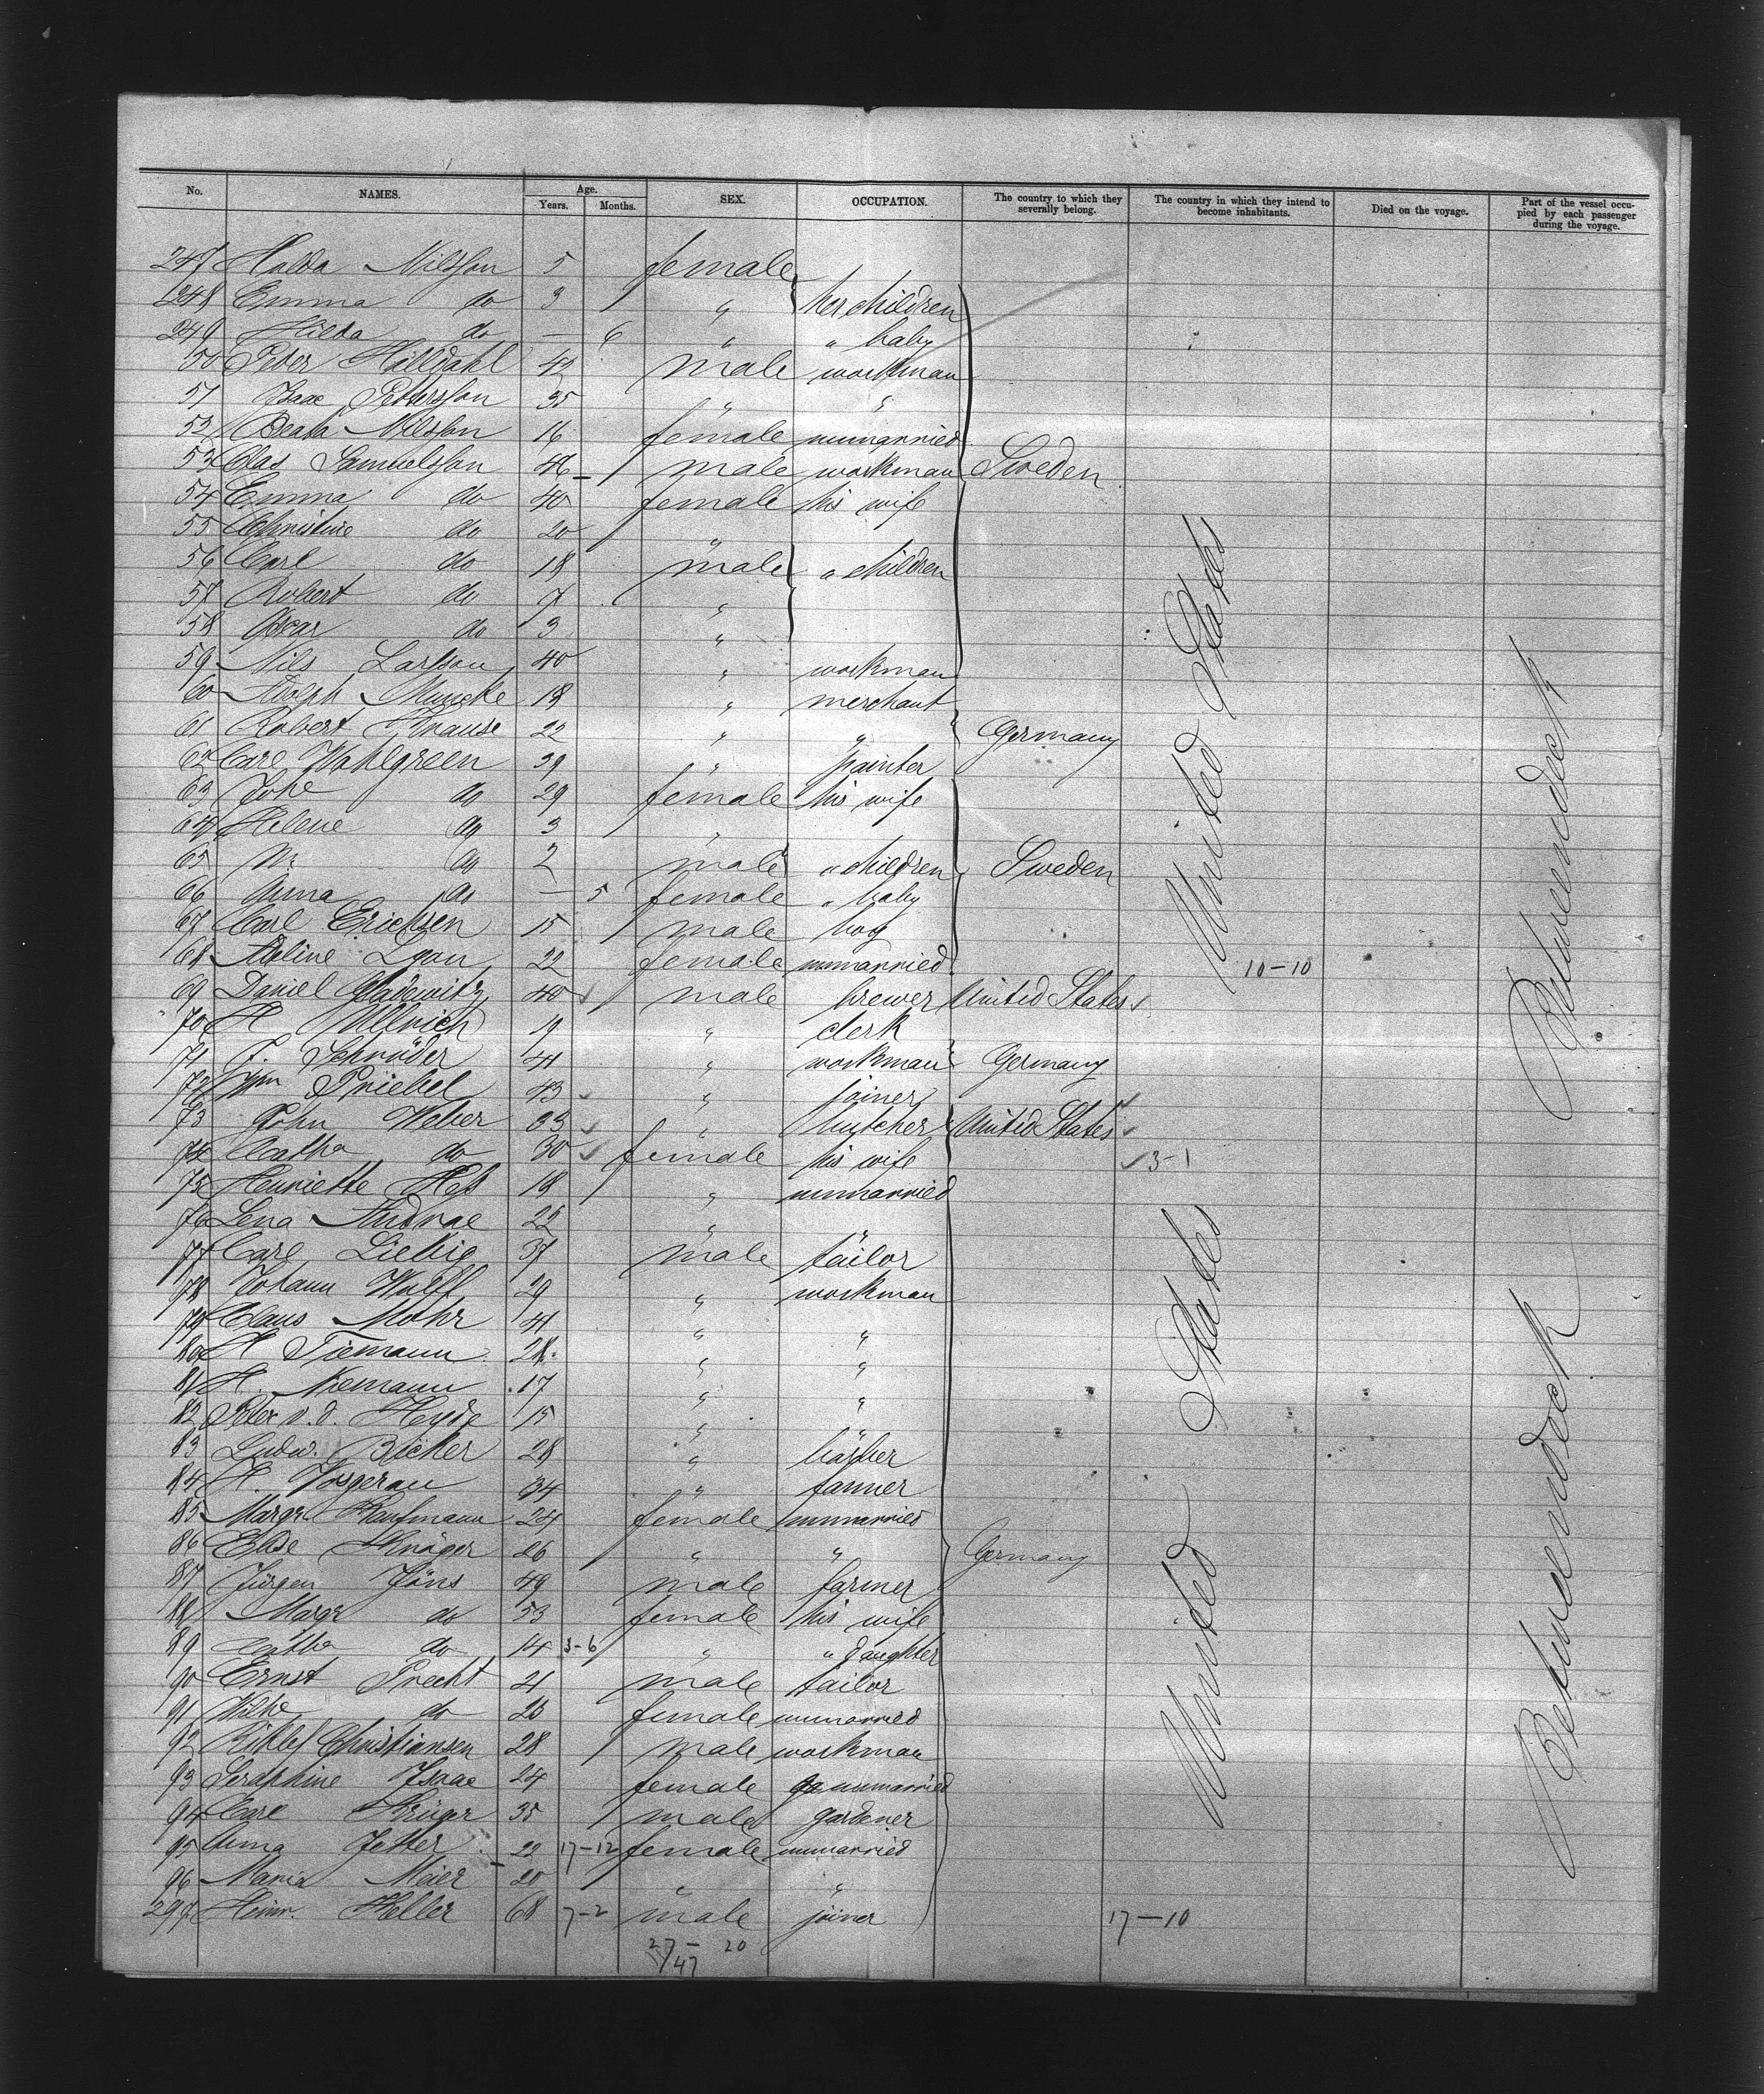 No. NAMES. Age. Years. Months. SEX. OCCUPATION. The country to which they severally belong. The country in which they intend to become inhabitants. Died on the voyage. Part of the vessel occupied by each passenger during the voyage.
247 Halda Nilsson 5 female
248 Emma do 3 " her children
249 Hilda do — 6 " " baby
50 Peter Hälldahl 42 male workman
51 Isaac Pettersson 35 " "
52 Beata Nilsson 16 female unmarried
53 Olas Samuelsson 46 male workman Sweden
54 Emma do 40 female his wife
55 Christine do 20 "
56 Carl do 18 male " children
57 Robert do 7 "
58 Oscar do 3 "
59 Nils Larsson 40 " workman
60 Adolph Muncke 18 " merchant
61 Robert Krause 22 " " Germany
62 Carl Wahlgreen 39 " painter
63 do 29 female his wife
64 Helene do 3 "
65 do 2 male " children Sweden
66 Anna do — 5 female " baby
67 Carl Erichsen 15 male boy
68 Adline Lyon 22 female unmarried 10-10
69 Daniel Gladewitz 40 male brewer United States
70 H Ullrich 19 " clerk
71 J. Schröder 41 " workman Germany
72 Wm Priebel 43 " joiner
73 John Weber 33 " butcher United States
74 Cathe do 30 female his wife 3-1
75 Henriette Heß 18 " unmarried
76 Lena Andrae 22 " "
77 Carl Liebig 37 male tailor
78 Johann Wulff 29 " workman
79 Claus Mohr 41 " "
80 H Tiemann 28 " "
81 H. Niemann 17 " "
82 Peter v. d. Heyde 15 " "
83 Ludw. Bücker 28 " barber
84 H. Vosgerau 34 " farmer
85 Margr Kaufmann 24 female unmarried
86 Elise Kröger 26 " " Germany
87 Jürgen Jöns 49 male farmer
88 Margr do 53 female his wife
89 Cathe do 14 3-6 " " daughter
90 Ernst Precht 21 male tailor
91 Wilhe do 20 female unmarried
92 Christiansen 28 male workman
93 Seraphine Isaac 24 female unmarried
94 Carl Krüger 35 male gardener
95 Anna Jetter 22 17-12 female unmarried
96 Maria Meier 20 " "
297 Heinr. Heller 68 7-2 male joiner 17-10
27-20
47
United States
United States
Betweendeck
Betweendeck